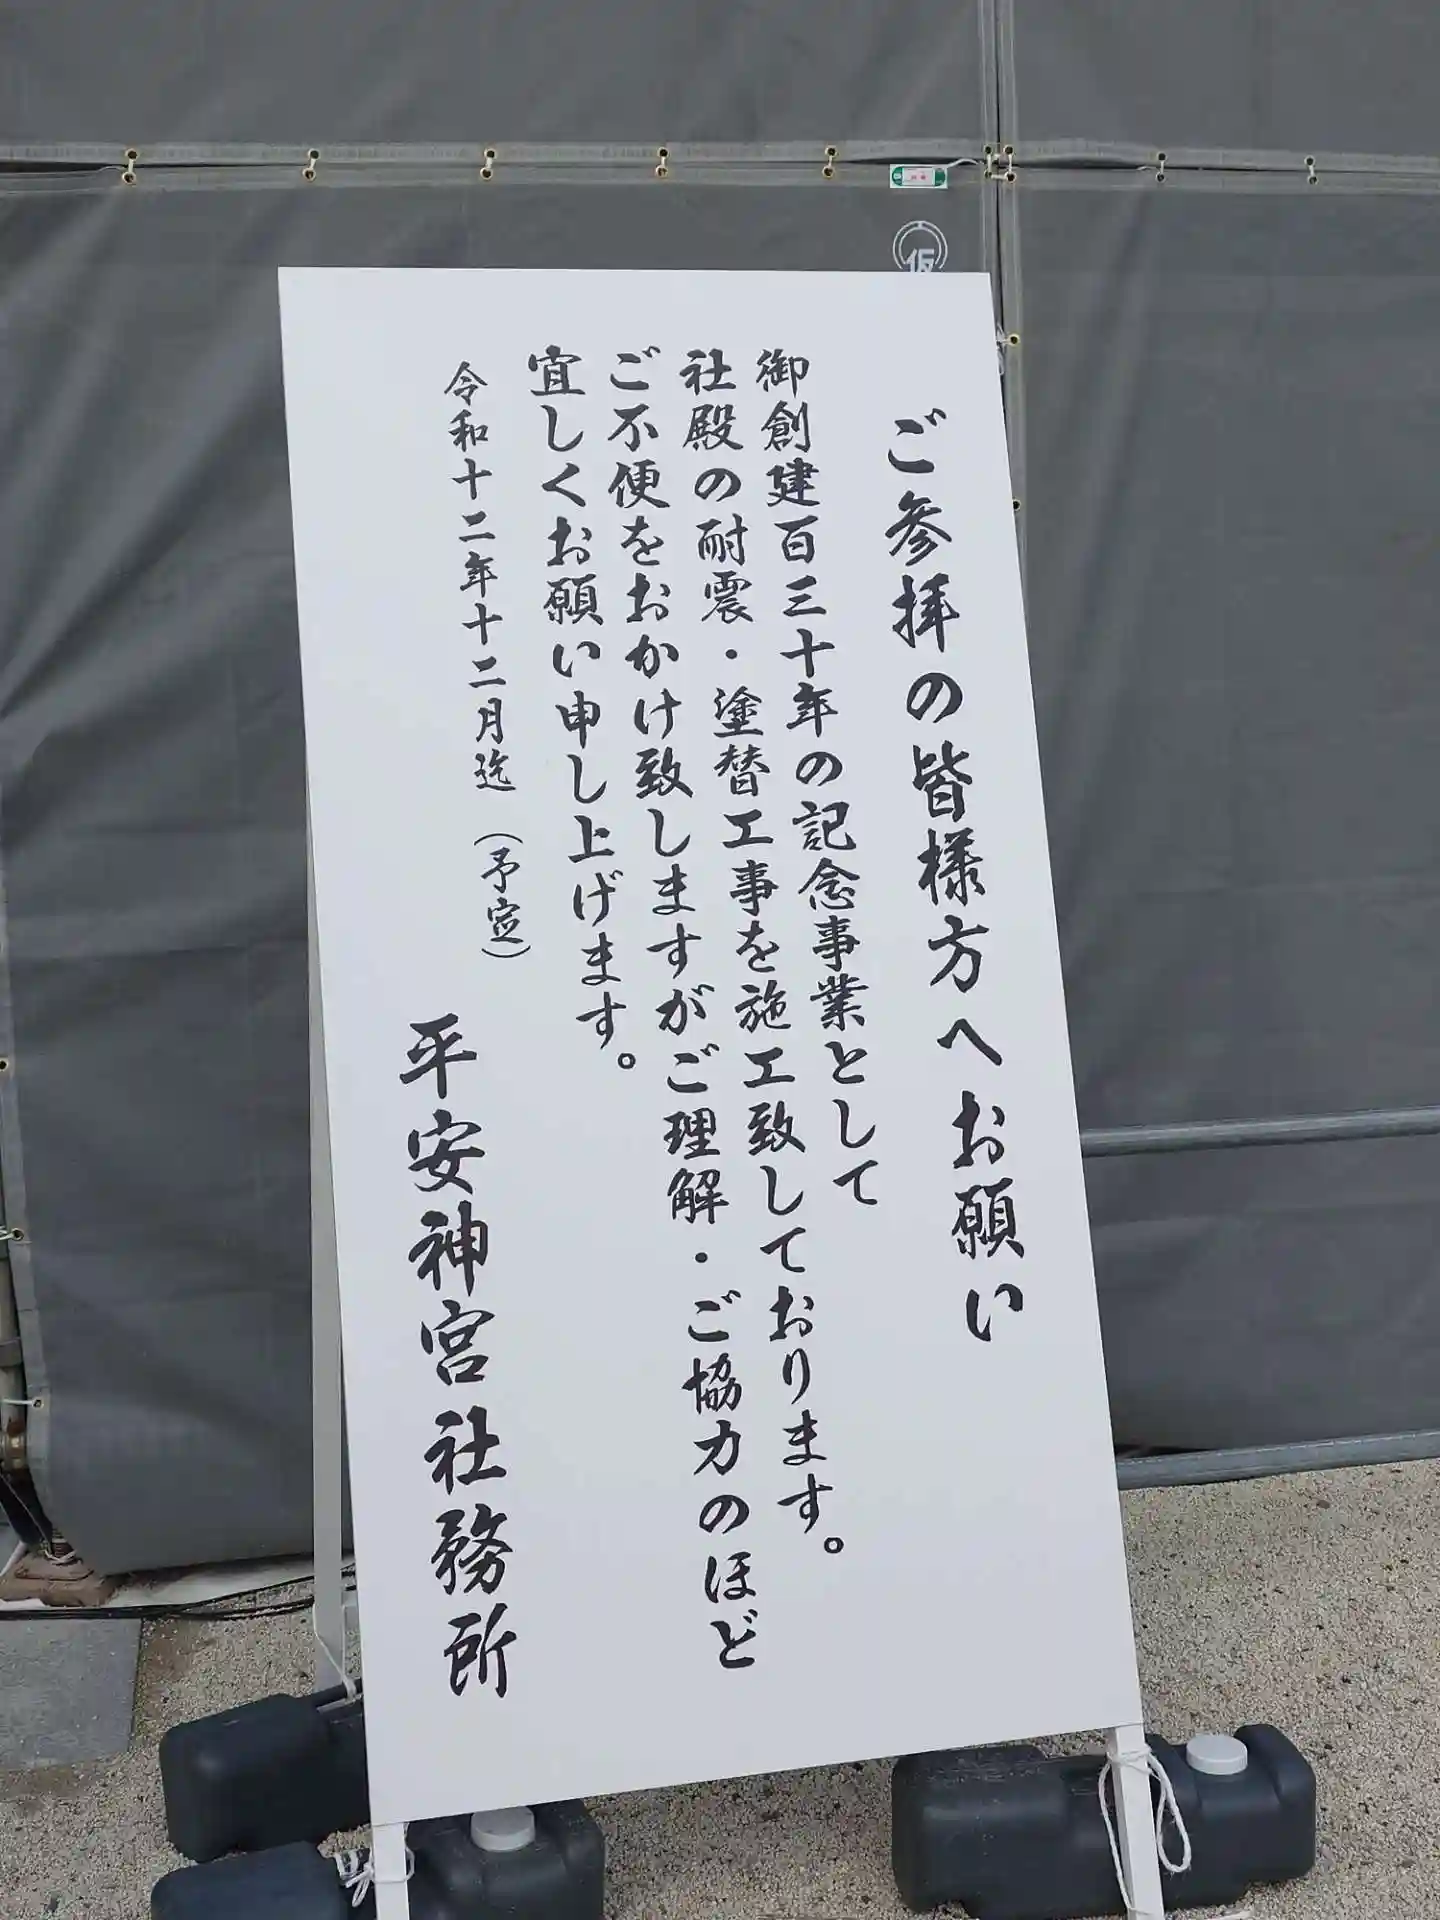 ご参拝の皆様方へお願い
御創建百三十年の記念事業として
社殿の耐震・塗替工事を施工致しております。
ご不便をおかけ致しますがご理解・ご協力のほど
宜しくお願い申し上げます。
令和十二年十二月迄（予定）
平安神宮社務所
仮